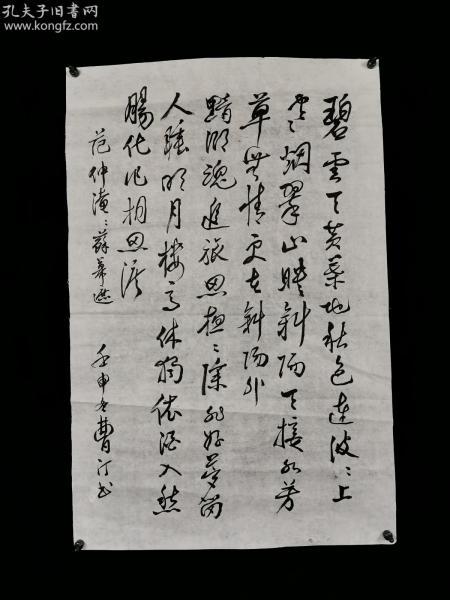 孔夫子旧书网
www.kongfz.com
碧雲天黄葉地秋色連波〻上
寒烟翠山映斜陽天接水芳
草無情更在斜陽外
黯鄉魂追旅思夜〻除非好夢留
人睡明月樓高休獨依酒入愁
腸化作相思淚
范仲淹〻蘇幕遮
壬申冬曹汀书